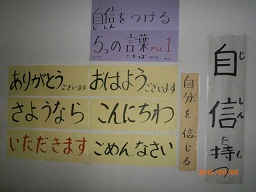 自信をつける
5つの言葉プラス1
ありがとうございます
おはようございます
さようなら
こんにちわ
いただきます
ごめんなさい
自分を信じる
自信を持
2015/09/04